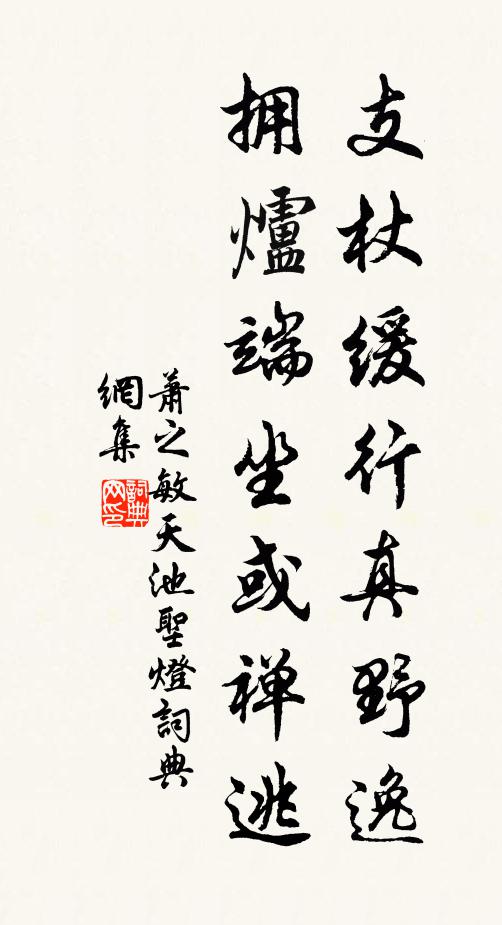 支杖缓行真野逸
拥爐端坐或禅逃
蕭之敏天池聖燈詞典
網集
詞典網印